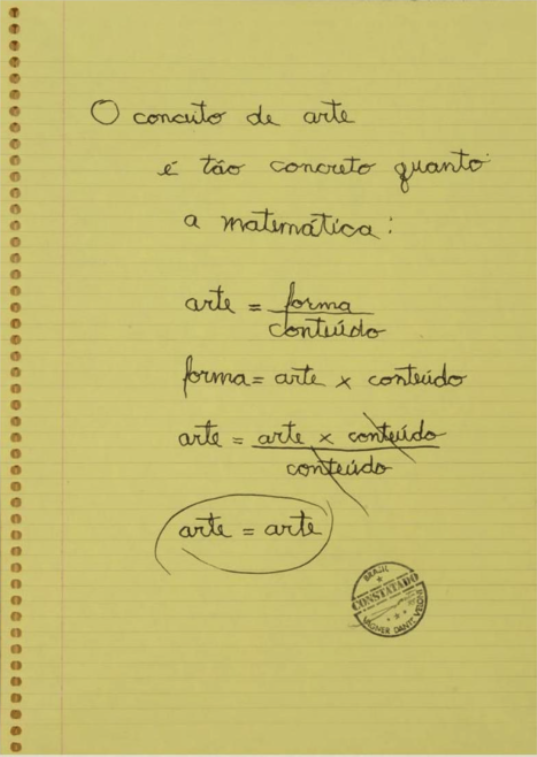 O conceito de arte
é tão concreto quanto
a matemática:
arte = forma
conteúdo
forma = arte x conteúdo
arte = arte x conteúdo
conteúdo
arte = arte
BRASIL
CONSTATADO
VAGNER DANTE VELONI